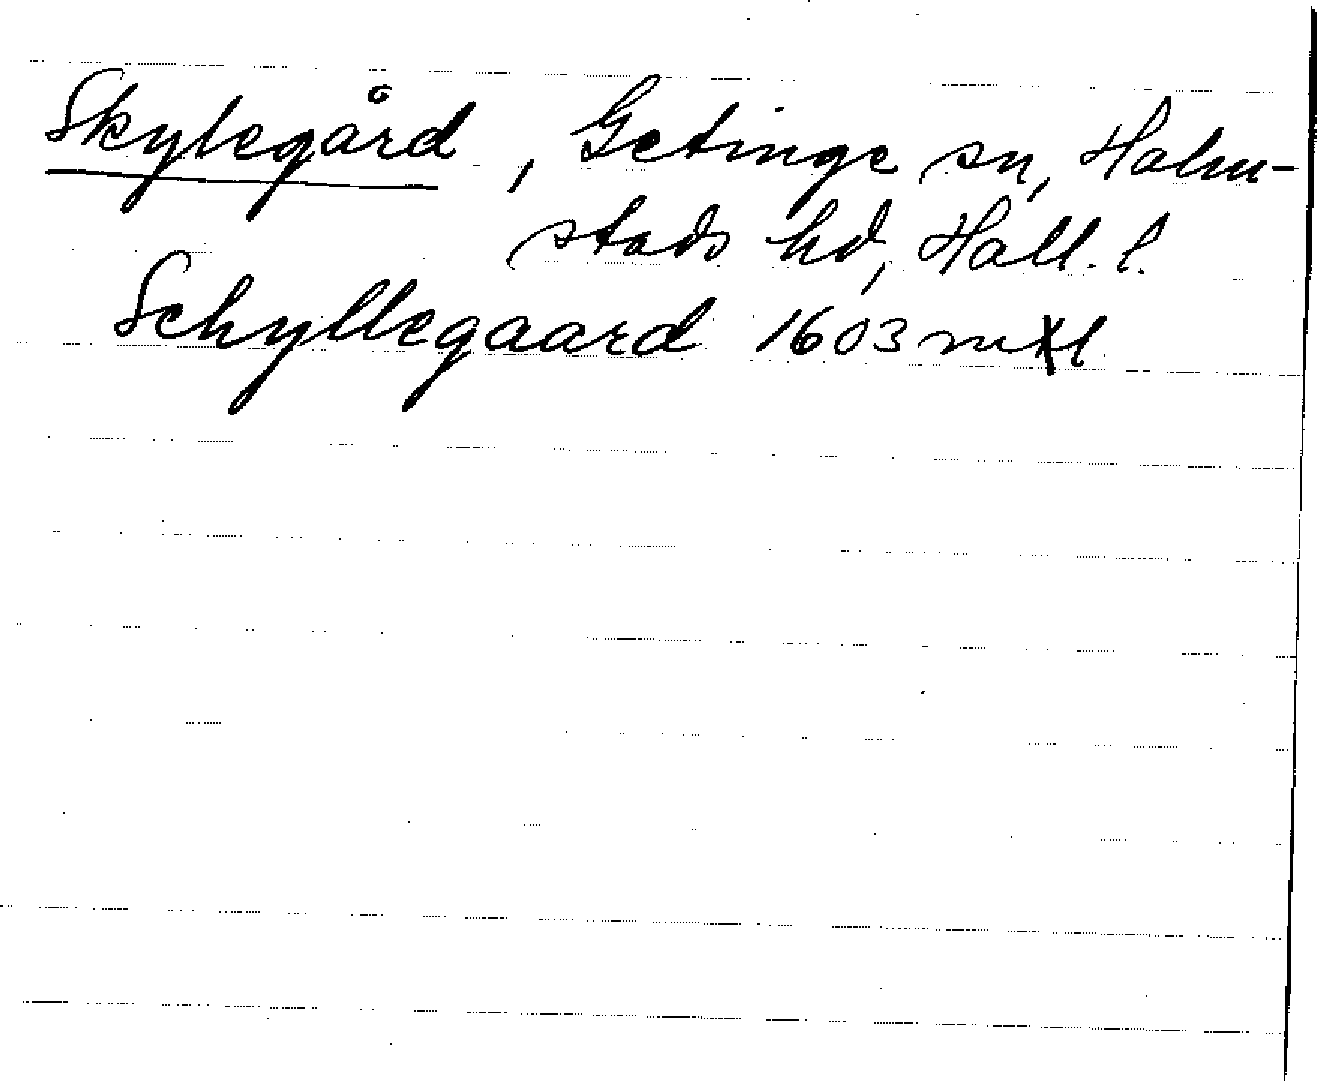 Skylegård, Getinge sn, Halm-
stads hd, Hall. l.
Schyllegaard 1603